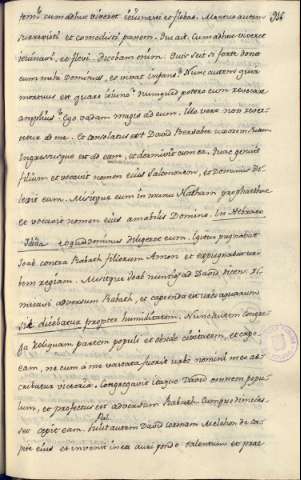 936
tem? cum adhuc viveret ieiunaste et flebas. Mortuo autem
surrexisti et comedisti panem. Qui ait. Cum adhuc viveret
ieiunavi, et flevi. Dicebam enim. Quis scit si forte donet
eum mihi Dominus, et vivat infans? Nunc autem quia
mortuus est quare ieiunem? numquid potero eum revocare
amplius? Ego vadam magis ad eum. Ille vero non rever-
tetur ad me. Et consolatus est David Bersabee uxorem suam
Ingressusque est ad eam, et dormivit cum ea. Quae genuit
filium et vocavit nomen eius Salomonem, et Dominus di-
lexit eum. Misitque eum in manu Nathan prophaethae
et vocavit nomen eius amabilis Domino. In Hebraeo
Idida eo quod Dominus diligeret eum. Igitur pugnabat
Joab contra Rabath filiorum Amon et expugnabat ur-
bem regiam. Misitque Joab nuntios ad David dicens. Di-
micavi adversum Rabath, et capienda est urbs aquarum
sic dicebatur propter humilitatem. Nunc autem congre-
ga reliquam partem populi et obside civitatem, et cape
eam, ne cum a me vastata fuerit urbs nomini meo ad-
scribatur victoria. Congregavit itaque David omnem popu-
lum, et profectus est adversum Rabath. Cumque dimicas-
set cepit eam. Tulit autem David coronam Melchon de ca-
pite eius et invenit in ea auri pondo talentum et prae